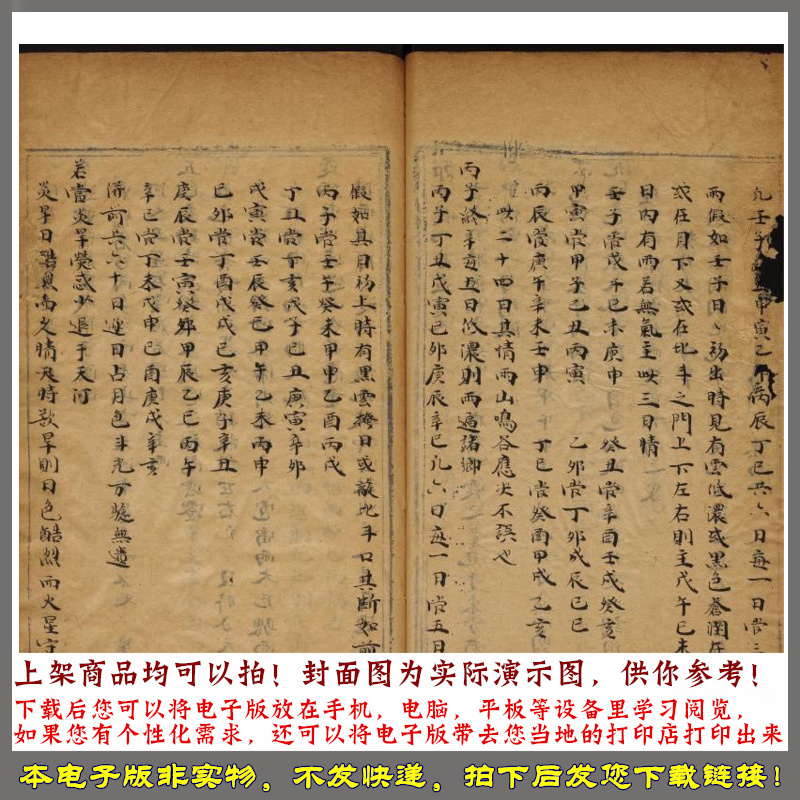 凡壬子 甲寅乙卯丙辰丁巳共六日每一日管三
雨假如壬子日日初出時見有雲低濃或黑色蒼潤在
或在月下又或在北斗之門上下左右則主戊午巳未
日內有雨若無氣主此三日晴
壬子管戊午巳未庚申　癸丑管辛酉壬戌癸亥
甲寅管甲子乙丑丙寅　乙卯管丁卯戊辰巳巳
丙辰管庚午辛未壬申　丁巳管癸酉甲戌乙亥
此二十四日其情雨山鳴谷應決不誤也
丙子終辛巳五日低濃則雨遍諸鄉
丙子丁丑戊寅巳卯庚辰辛巳凡六日每一日管五日
假如其日初上時有黑雲掩日或蔽北斗口其斷如前
丙子管壬午癸未甲申乙酉丙戌
丁丑管丁亥戊子巳丑庚寅辛卯
戊寅管壬辰癸巳甲午乙未丙申
巳卯管丁酉戊戌巳亥庚子辛丑
庚辰管壬寅癸卯甲辰乙巳丙午
辛巳管丁未戊申巳酉庚戌辛亥
得前六六十日逐日占月色斗光万驗無遺
若當炎旱熒惑少退于天河
炎旱日酷風高久晴及時歎旱則日色酷烈而火星守
上架商品均可以拍！封面图为实际演示图，供你参考！
下载后您可以将电子版放在手机，电脑，平板等设备里学习阅览，
如果您有个性化需求，还可以将电子版带去您当地的打印店打印出来
本电子版非实物，不发快递，拍下后发您下载链接！